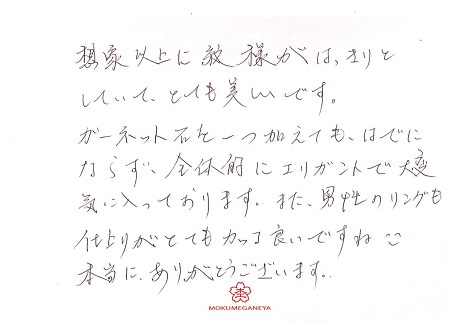 想象以上に紋様がはっきりと
していて、とても美しいです。
ガーネット石を一つ加えても、はでに
ならず、全体的にエリガントで大変
気に入っております。また、男性のリングも
仕上りがとてもカッコ良いですね
本当に、ありがとうございます。
MOKUMEGANEYA